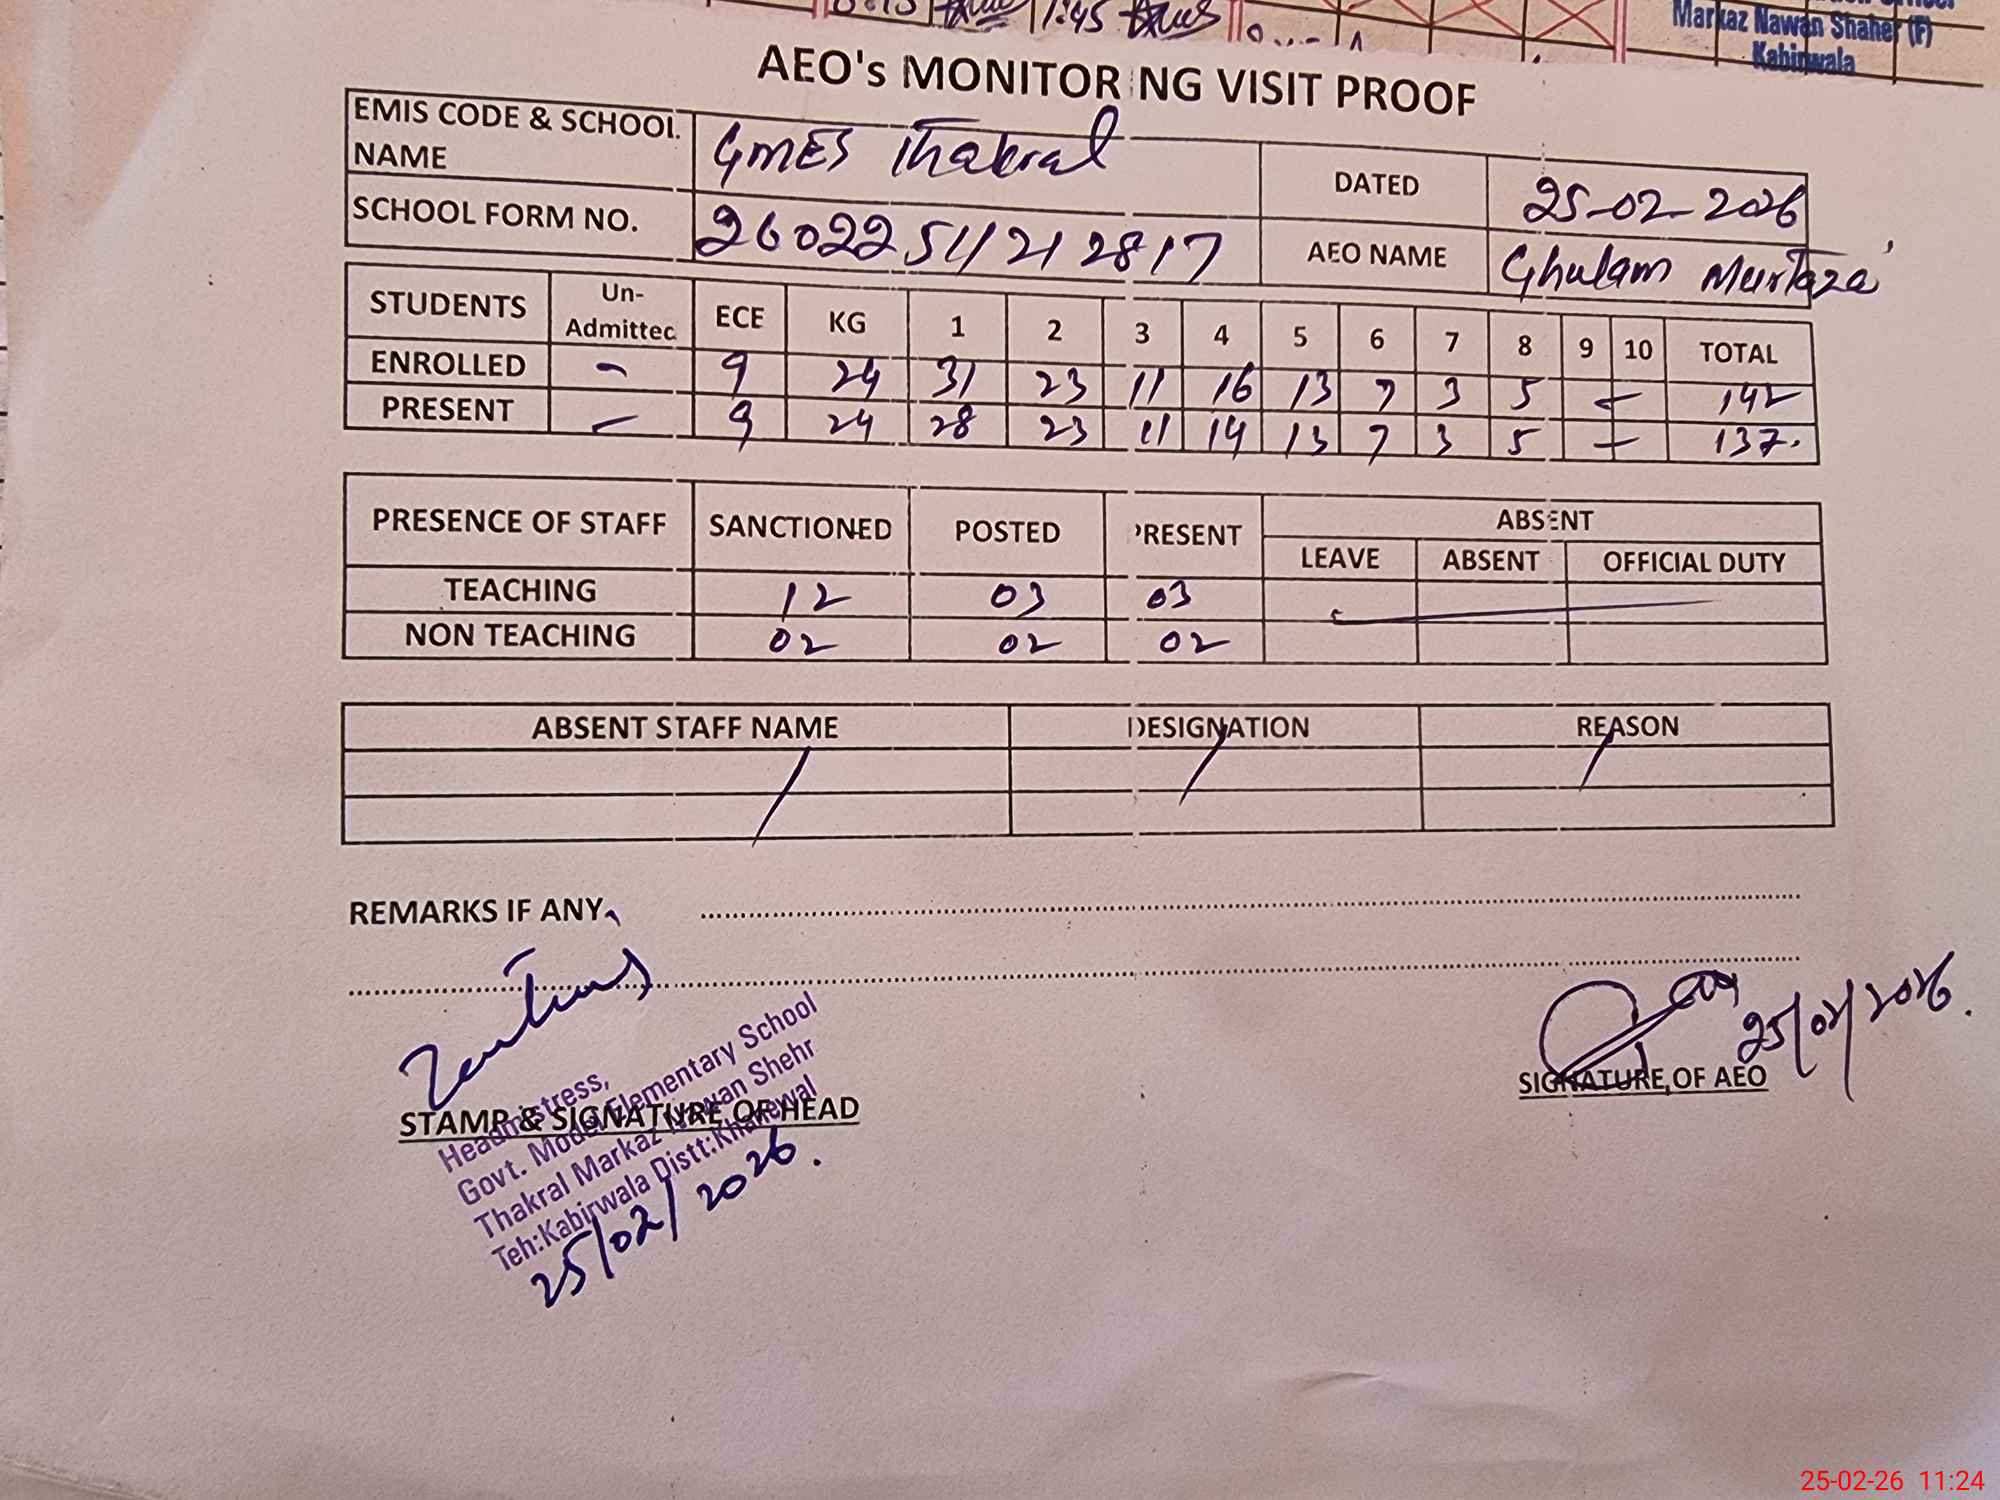 1:45
Markaz Nawan Shaher (F)
Kabirwala
AEO's MONITORING VISIT PROOF
EMIS CODE & SCHOOL NAME GMES Thakral DATED 25-02-2026
SCHOOL FORM NO. 26022511212817 AEO NAME Ghulam Murtaza
STUDENTS Un-Admitted ECE KG 1 2 3 4 5 6 7 8 9 10 TOTAL
ENROLLED - 9 24 31 23 11 16 13 7 3 5 - 142
PRESENT - 9 24 28 23 11 14 13 7 3 5 - 137.
PRESENCE OF STAFF SANCTIONED POSTED PRESENT ABSENT
LEAVE ABSENT OFFICIAL DUTY
TEACHING 12 03 03
NON TEACHING 02 02 02
ABSENT STAFF NAME DESIGNATION REASON
REMARKS IF ANY
25/02/2026.
STAMP & SIGNATURE OF HEAD SIGNATURE OF AEO
Headmistress,
Govt. Model Elementary School
Thakral Markaz Nawan Shehr
Teh:Kabirwala Distt:Khanewal
25/02/2026.
25-02-26 11:24